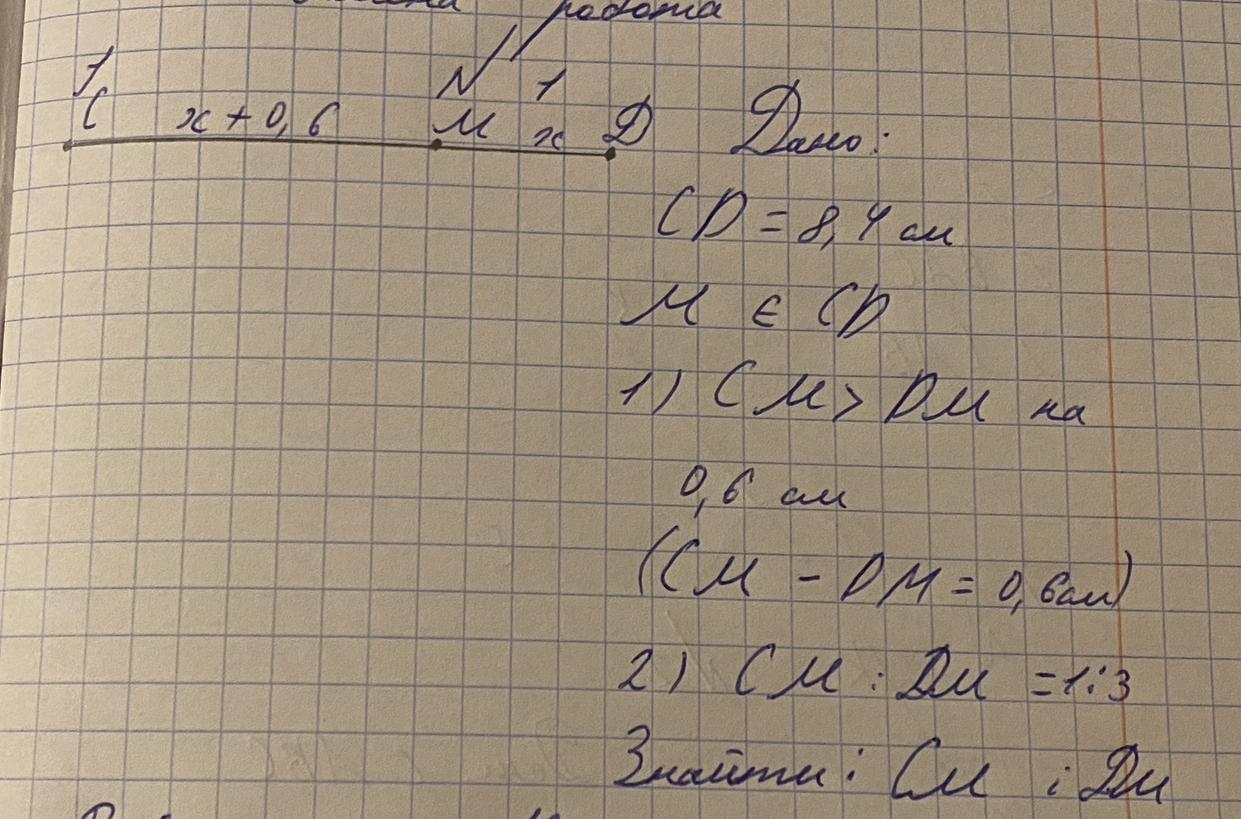 робота
N 11
1) C x+0,6 M x D
Дано:
CD = 8,4 см
M ∈ CD
1) CM > DM на
0,6 см
(CM - DM = 0,6см)
2) CM : DM = 1:3
Знайти: CM і DM